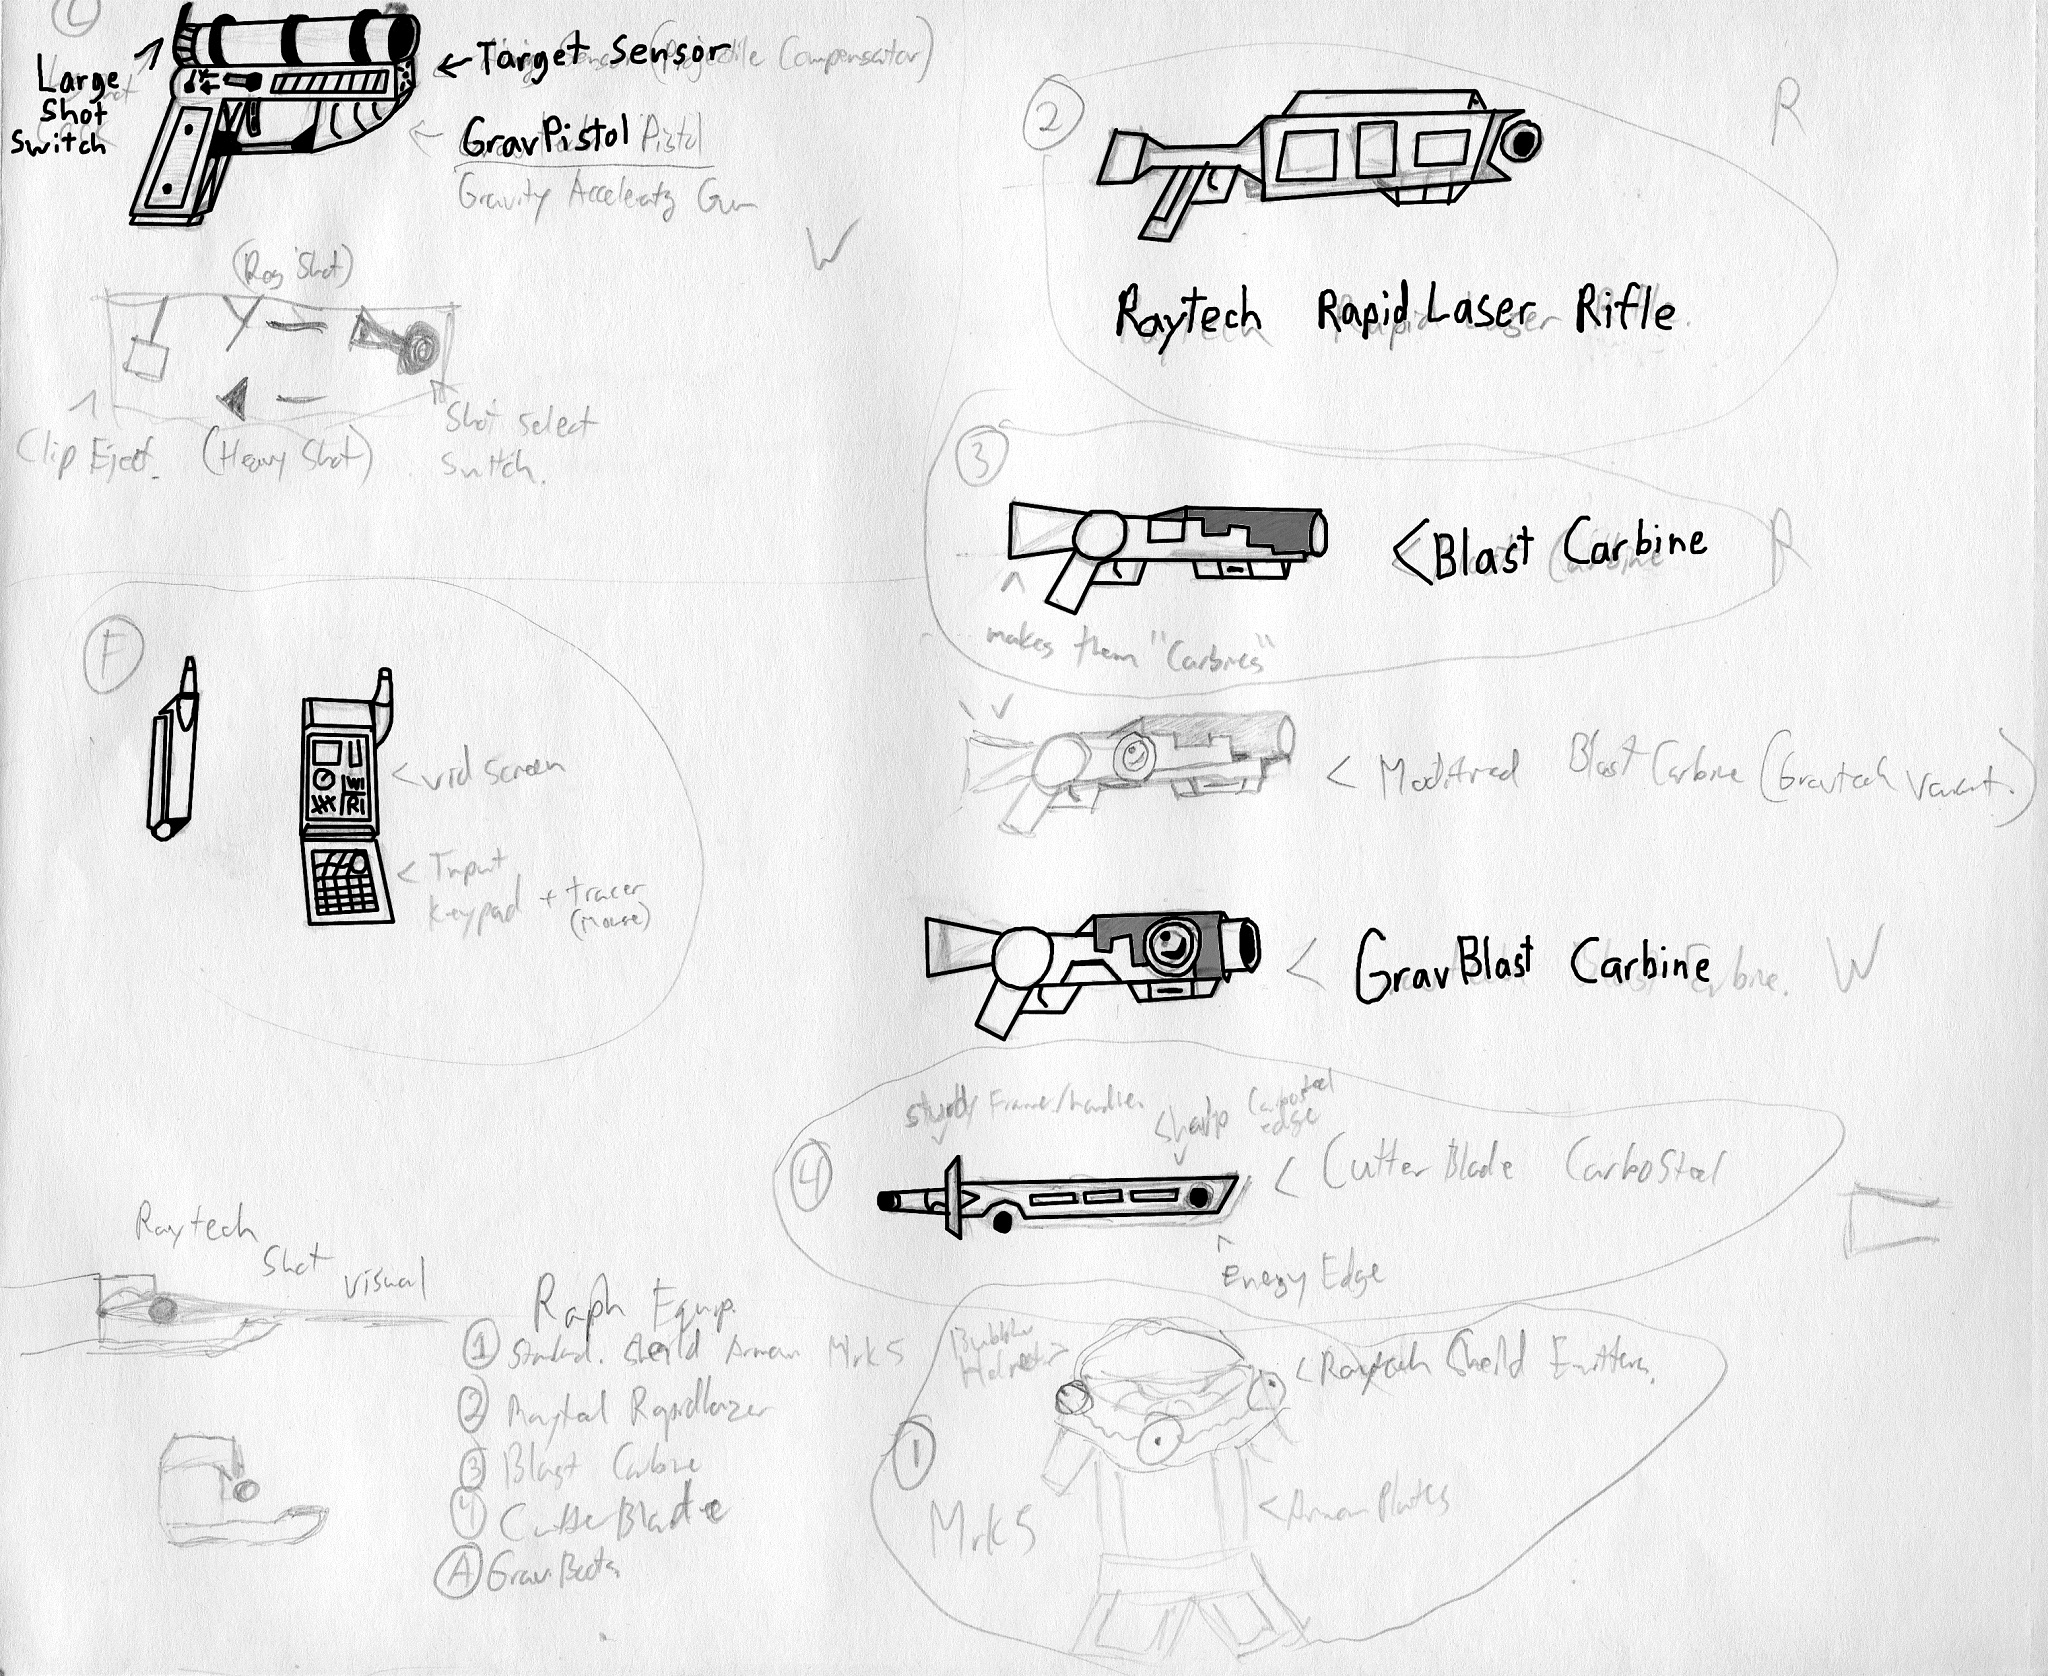 L
Large
Shot
Switch
Target Sensor (Projectile Compensator)
GravPistol Pistol
Gravity Acceleratz Gun
W
(Reg Shot)
Clip Eject.
(Heavy Shot)
Shot select
switch.
2
R
Raytech Rapid Laser Rifle
3
Blast Carbine
R
makes them "Carbines"
Modified Blast Carbine (Gravtech Variant.)
GravBlast Carbine
W
F
vid screen
Input
Keypad + tracer
(mouse)
4
sturdy Frame/handle
sharp Carbosteel
edge
CutterBlade CarboSteel
Energy Edge
Raytech
Shot visual
Raph Equip.
1 Standard. Sheild Armor Mrk 5
2 Raytech Rapidlazer
3 Blast Carbine
4 CutterBlade
A Grav.Boots
1
Mrk 5
Helmet
Raytech Sheild Emitters.
Armor Plates